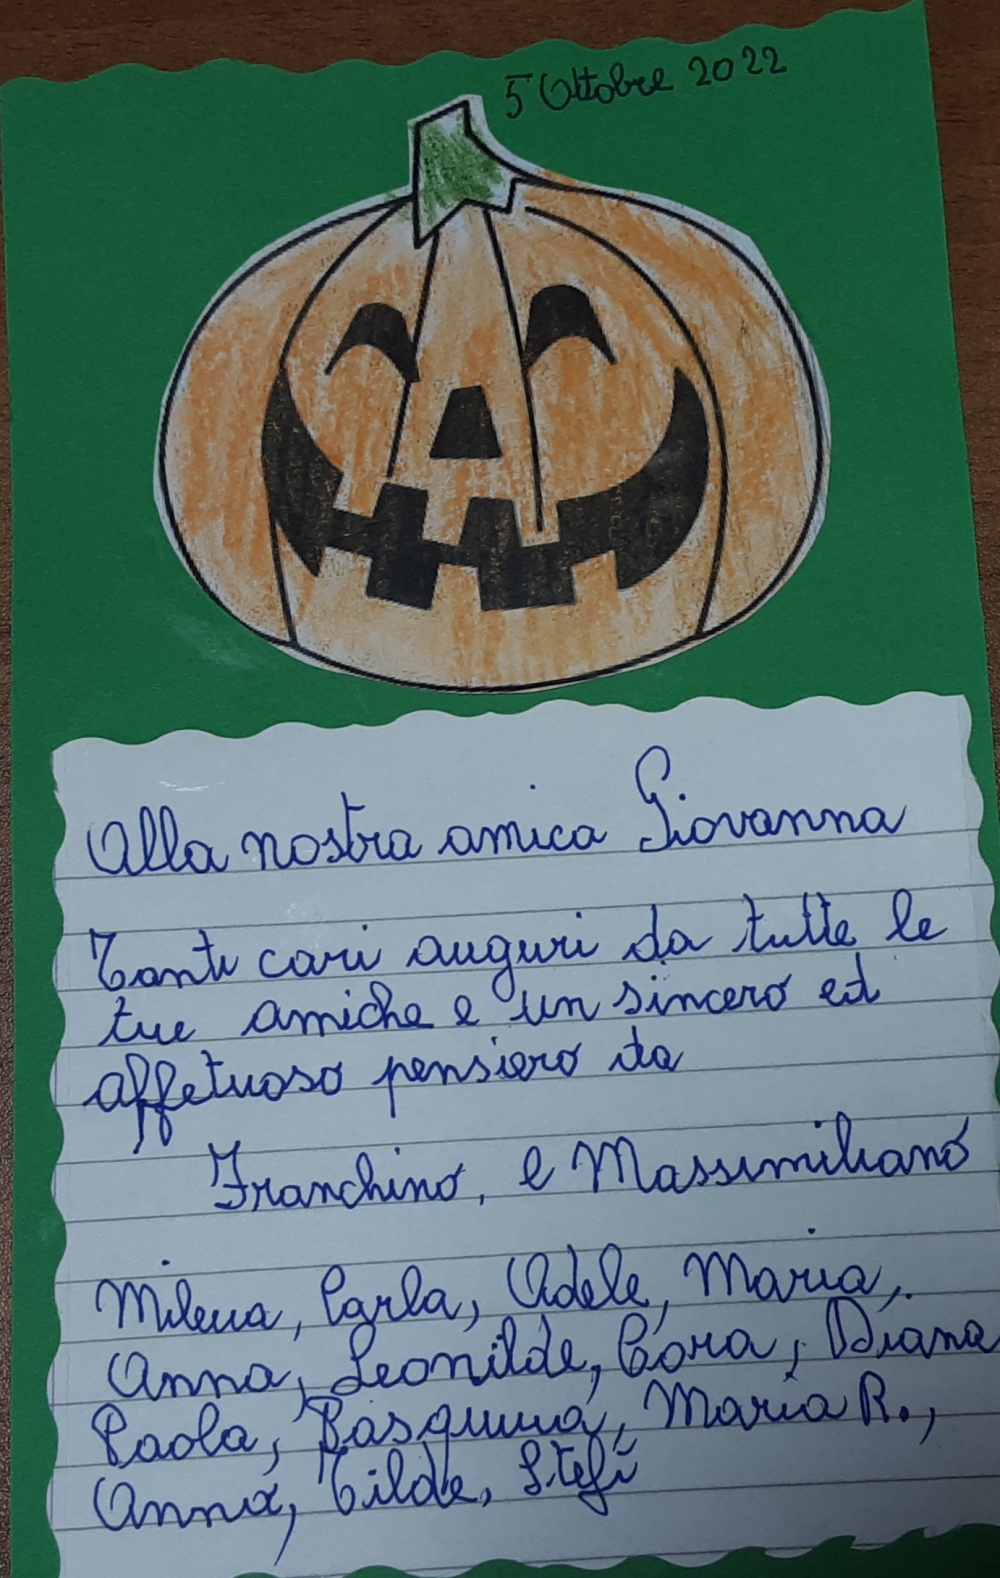 5 Ottobre 2022
Alla nostra amica Giovanna
Tanti cari auguri da tutte le
tue amiche e un sincero ed
affetuoso pensiero da
Franchino, e Massimiliano
Milena, Carla, Adele, Maria,.
Anna, Leonilde, Cora, Diana
Paola, Pasquina, Maria R.,
Anna, Tilde, Stefi